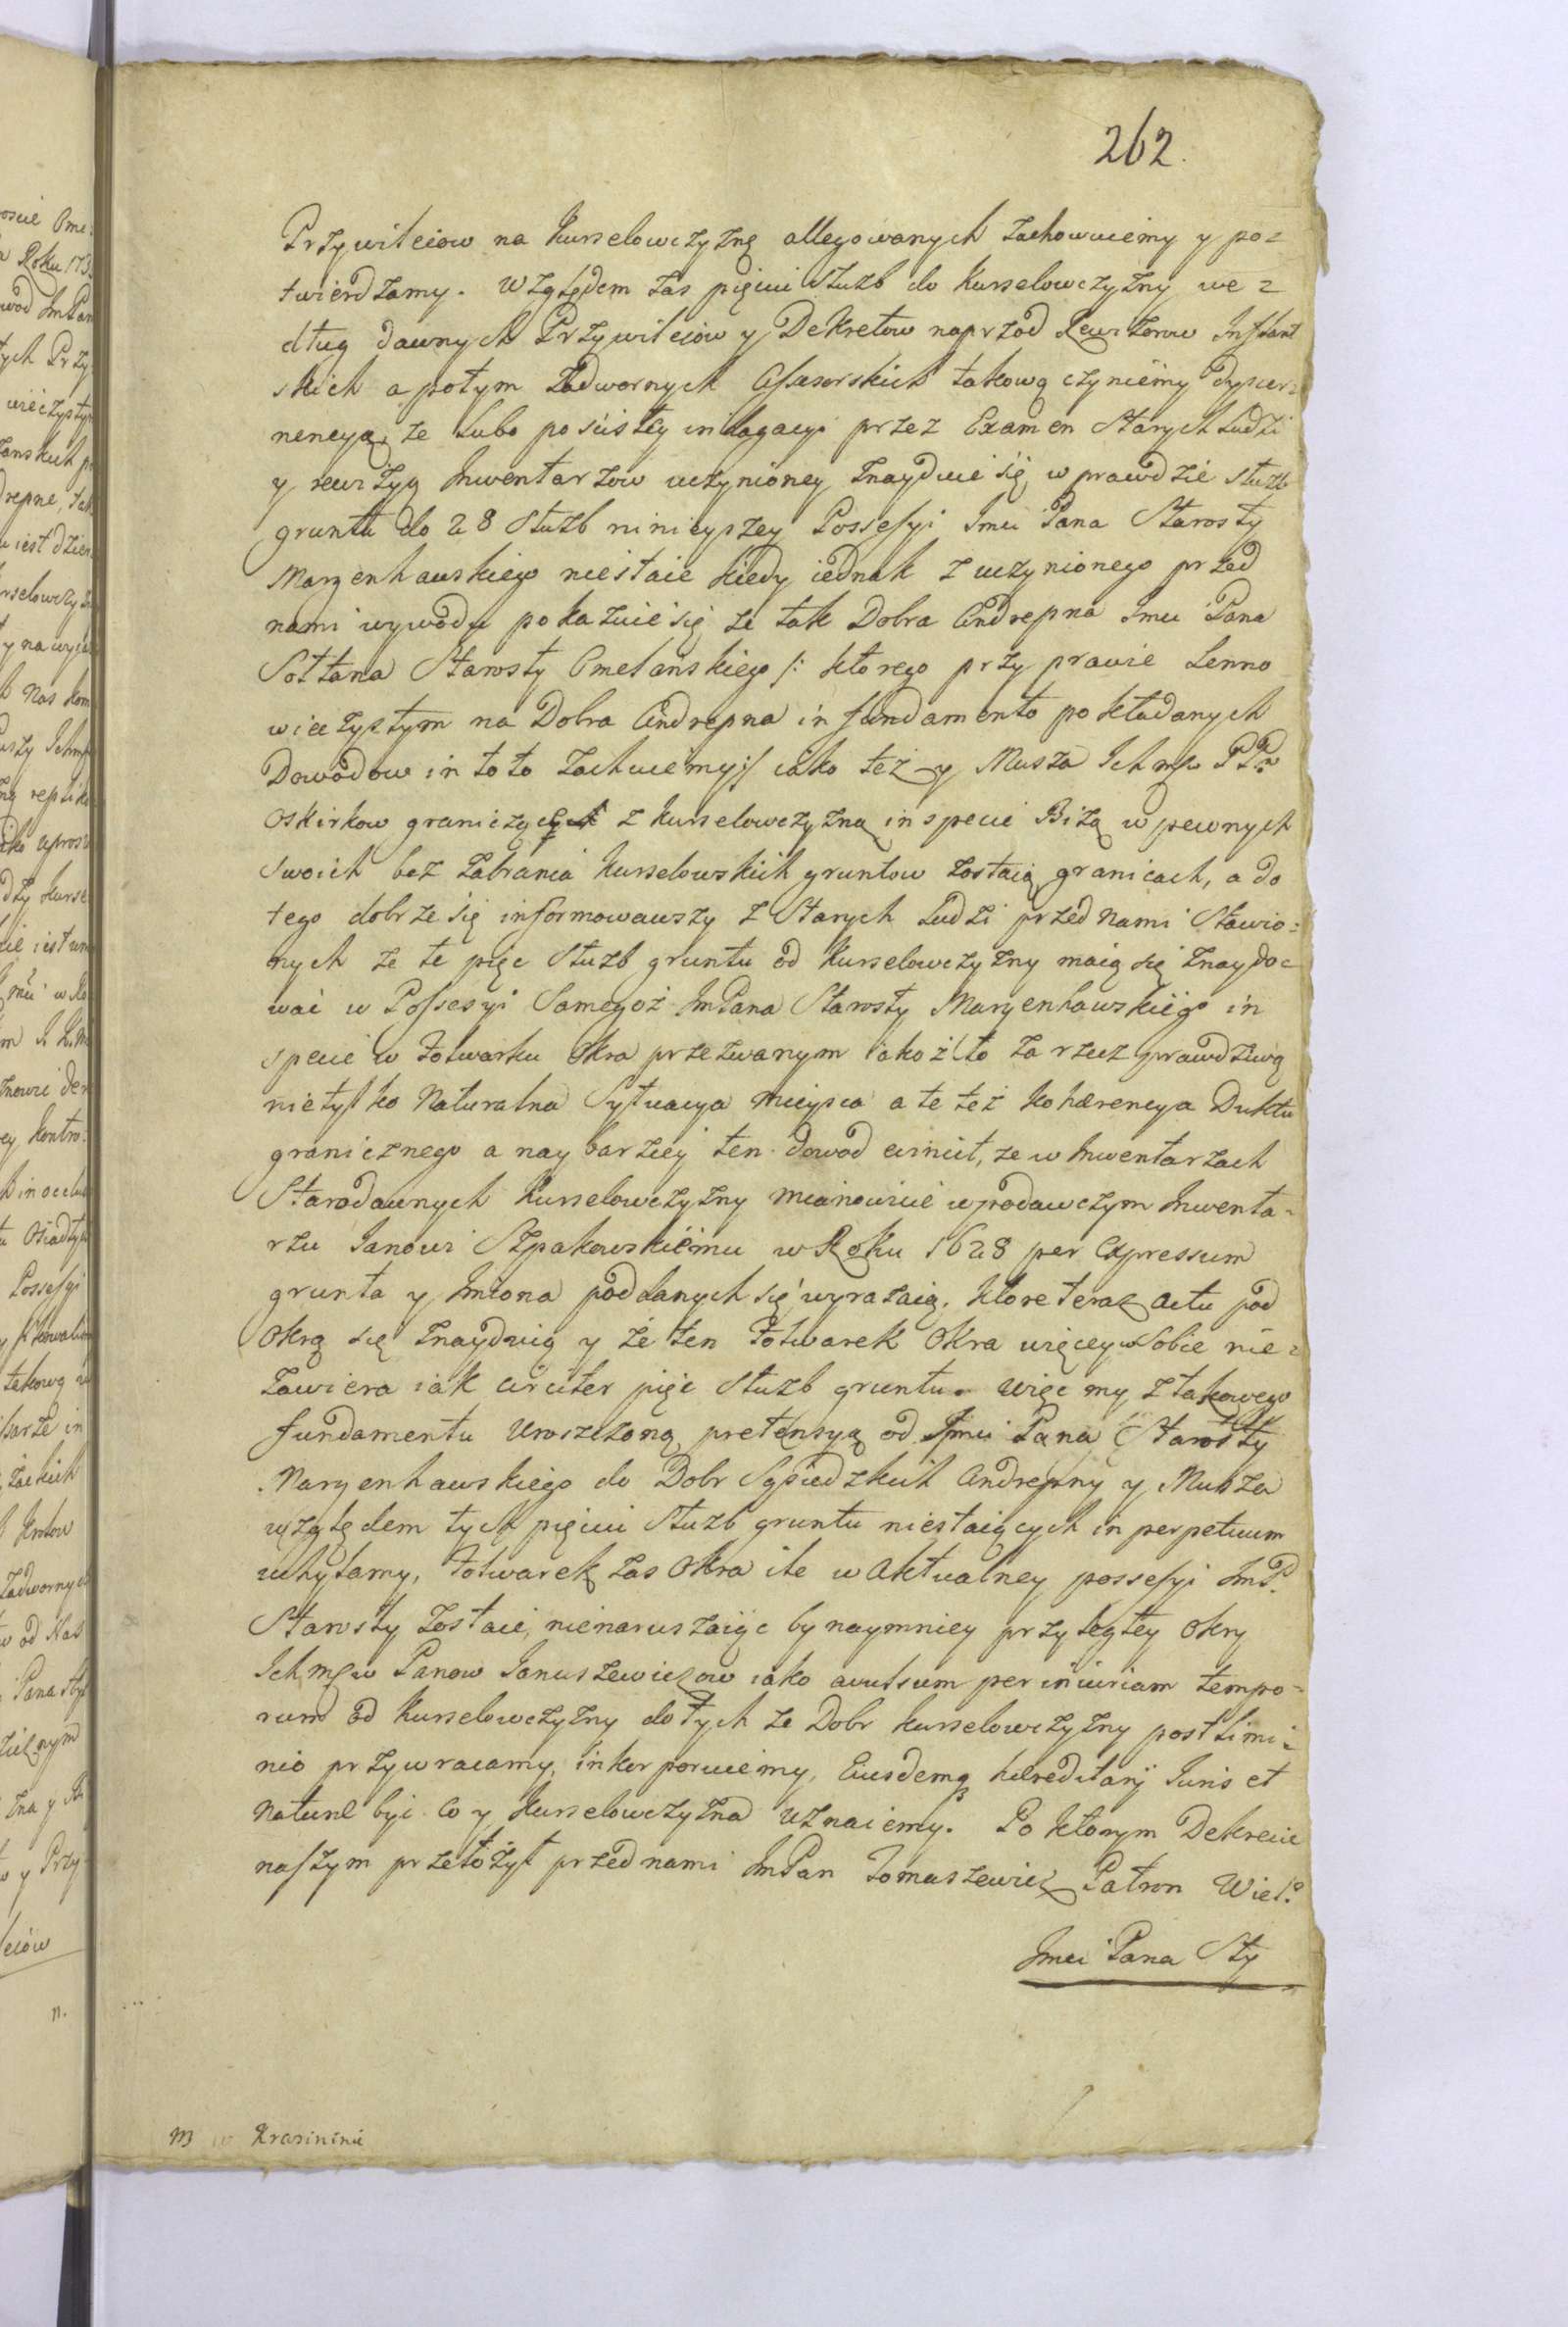 262.
Przywileiow na Kurselowczyznę allegowanych zachowuiemy y po=
twierdzamy. Względem zas pięciu Służb do Kurselowczyzny we=
dług dawnych Przywileiow y Dekretow naprzod Rewizorow Inflant
skich a potym Zadwornych Assesorskich takową czyniemy dyscer=
nencyą, ze lubo po scisłey indagacyi przez Examen Starych Ludzi
y rewizyą Inwentarzow uczynioney znayduie się w prawdzie służb
gruntu do 28 Służb ninieyszey Possessyi Imci Pana Starosty
Maryenhauskiego niestaie kiedy iednak z uczynionego przed
nami wywodu pokazuie się ze tak Dobra Andrepna Imci Pana
Sołtana Starosty Omelańskiego /: ktorego przy prawie Lenno
wieczystym na Dobra Andrepna in fundamento pokładanych
Dowodow in toto zachuiemy :/ iako też y Musza Ichmsc PPw
Oskirkow graniczących z Kurselowczyzną in specie Bizą w pewnych
swoich bez zabrania Kurselowskich gruntow zostaią granicach, a do
tego dobrze się informowawszy z Starych Ludzi przed Nami Stawio=
nych ze te pięc Służb gruntu od Kurselowczyzny maią się znaydo=
wać w Possesyi Samegoż ImPana Starosty Maryenhauskiego in
specie w Folwarku Okra przezwanym iakoż to za rzecz prawdziwą
nietylko Naturalna Sytuacya mieysca ale też kohærencya Duktu
granicznego a naybarziey ten dowod evincit, ze w Inwentarzach
Starodawnych Kurselowczyzny mianowicie w podawczym Inwenta=
rzu Janowi Szpakowskiemu w Roku 1628 per Expressum
grunta y Imiona poddanych się wyrazaią. Ktore teraz actu pod
Okrą się znayduią y że ten Folwarek Okra więcey w Sobie nie=
zawiera iak circiter pięc Służb gruntu. Więc my z takowego
fundamentu Uroszczoną pretensyą od Imci Pana Starosty
Maryenhauskiego do Dobr Sąsiedzkich Andrepny y Musza
względem tych pięciu Służb gruntu niestaiących in perpetuum
uchylamy, Folwarek zas Okra ile w Aktualney possessyi ImP.
Starosty zostaie, nienaruszaiąc bynaymniey przyległey Okry
Ichmsciow Panow Januszewiczow iako avulsum per iniuriam tempo=
rum od Kurselowczyzny do tych ze Dobr Kurselowczyzny postlimi=
nio przywracamy, inkorporuiemy, Eiusdemq3 hæreditarij Iuris et
Naturæ być co y Kurselowczyzna uznaiemy. Po ktorym Dekrecie
naszym przełożył przed nami ImPan Tomaszewicz Patron Wiel.
Imci Pana Sty